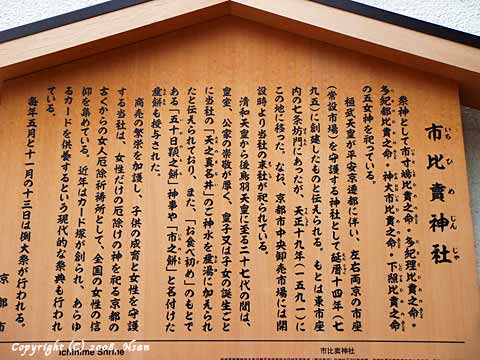 市比賣神社
いちひめじんじゃ
祭神として市寸嶋比賣之命・多紀理比賣之命・
多紀都比賣之命・神大市比賣之命・下照比賣之命
の五女神を祀っている。
桓武天皇が平安京遷都に伴い、左右両京の市座
(常設市場)を守護する神社として延暦十四年(七
九五)に創建したものと伝えられる。もとは東市座
内の七条坊門にあったが、天正十九年(一五九一)に
この地に移った。なお、京都市中央卸売市場には開
設時より当社の末社が祀られている。
清和天皇から後鳥羽天皇に至る二十七代の間は、
皇室、公家の崇敬が厚く、皇子又は子女の誕生ごと
に当社の「天之真名井」のご神水を産湯に加えられ
たと伝えられており、また、「お食べ初め」のもとで
ある「五十日顆之餅」神事や「市之餅」と名付けた
産餅も授与された。
商売の繁栄を加護し、子供の成育と女性を守護
する当社は、女性だけの厄除けの神を祀る京都の
古くからの女人厄除祈祷所として、全国の女性の信
仰を集めている。近年はカード塚が創られ、あらゆ
るカードを供養するという現代的な祭典も行われ
ている。
毎年五月と十一月の十三日は例大祭が行われる。
京都市
Ichihime Shrine
市比賣神社
Copyright (C) 2008, Nsan